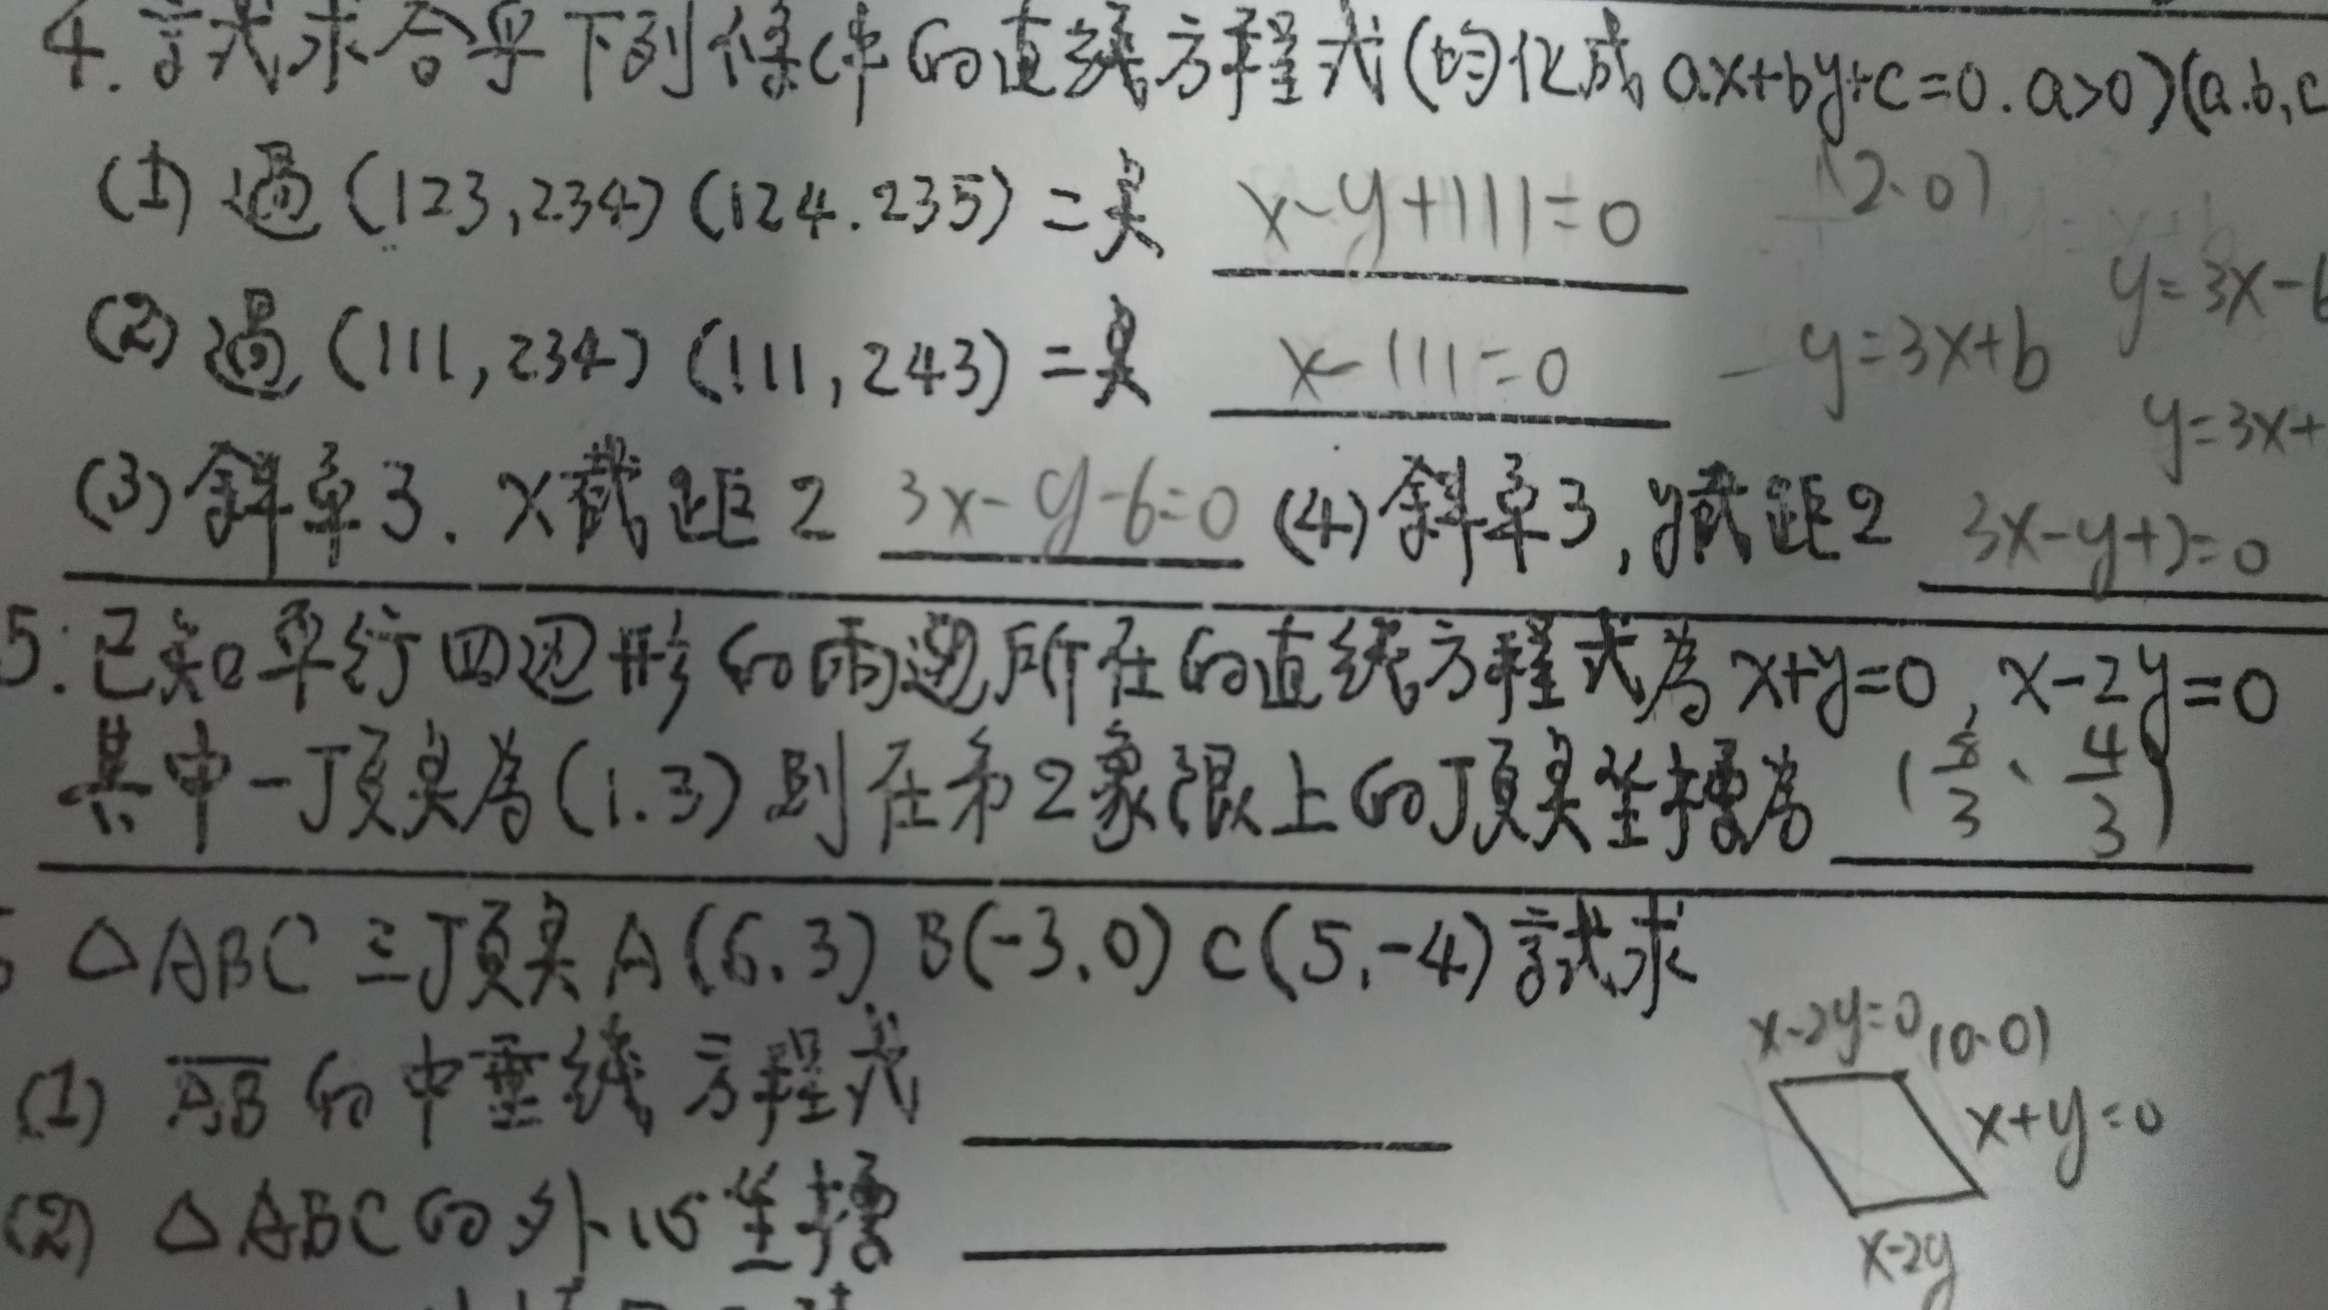 4. 試求合乎下列條件的直線方程式(均化成 ax+by+c=0. a>0)(a.b,c
(1) 過 (123,234) (124.235) 二點 x-y+111=0
(2.0)
y=3x-6
(2) 過 (111,234) (111,243) 二點 x-111=0
y=3x+b
y=3x+
(3) 斜率3. x截距2 3x-y-6=0 (4) 斜率3, y截距2 3x-y+2=0
5. 已知平行四边形的兩邊所在的直線方程式為 x+y=0, x-2y=0
其中一頂點為(1.3) 則在第2象限上的頂點坐標為 (8/3、4/3)
△ABC 三頂點 A(6.3) B(-3.0) C(5,-4) 試求
(1) AB 的中垂線方程式
(2) △ABC的外心坐標
x-2y=0 (0.0)
x+y=0
x-2y